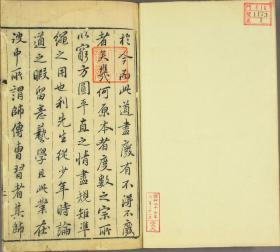 於今而此道盡廢有不得不廢
者矣幾何原本者度數之宗所
以窮方圓平直之情盡規矩準
繩之用也利先生從少年時論
道之暇留意藝學且此業在
彼中所謂師傳曹習者其師